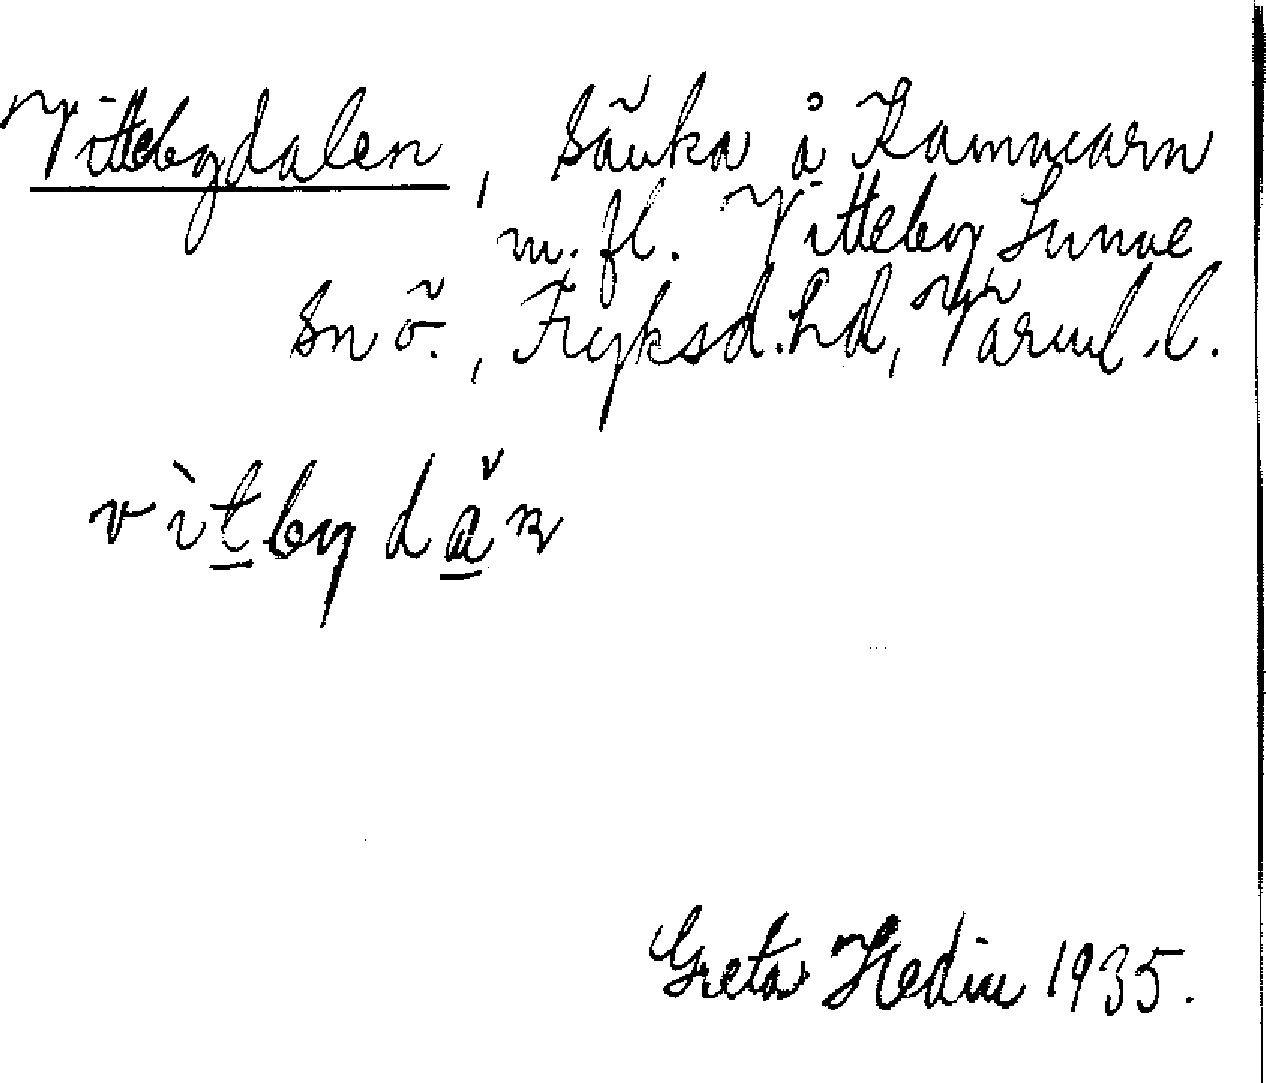 Vittebydalen, sänka å Kamnarn
m. fl. Vitteby Sunne
sn ö., Fryksd. hd, Värml. l.
vìtby dǎn
Greta Hedin 1935.